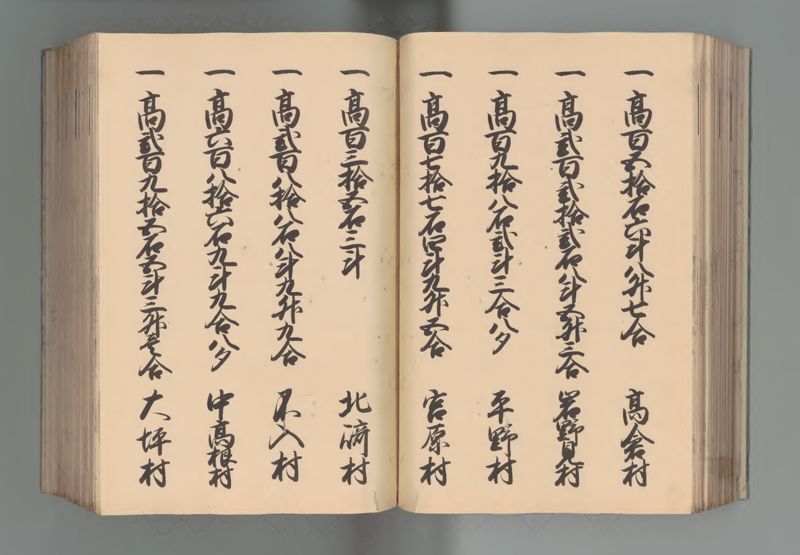 一 高百五拾石六斗八升七合 高倉村
一 高弐百弐拾弐石八斗五升三合 岩野見村
一 高百九拾八石弐斗三合八夕 平野村
一 高百七拾七石四斗九升五合 宮原村
一 高百三拾五石三斗 北﨑村
一 高弐百八拾八石八斗九升九合 不入村
一 高六百八拾六石九斗九合八夕 中高根村
一 高弐百九拾五石五斗三升壱合 大坪村